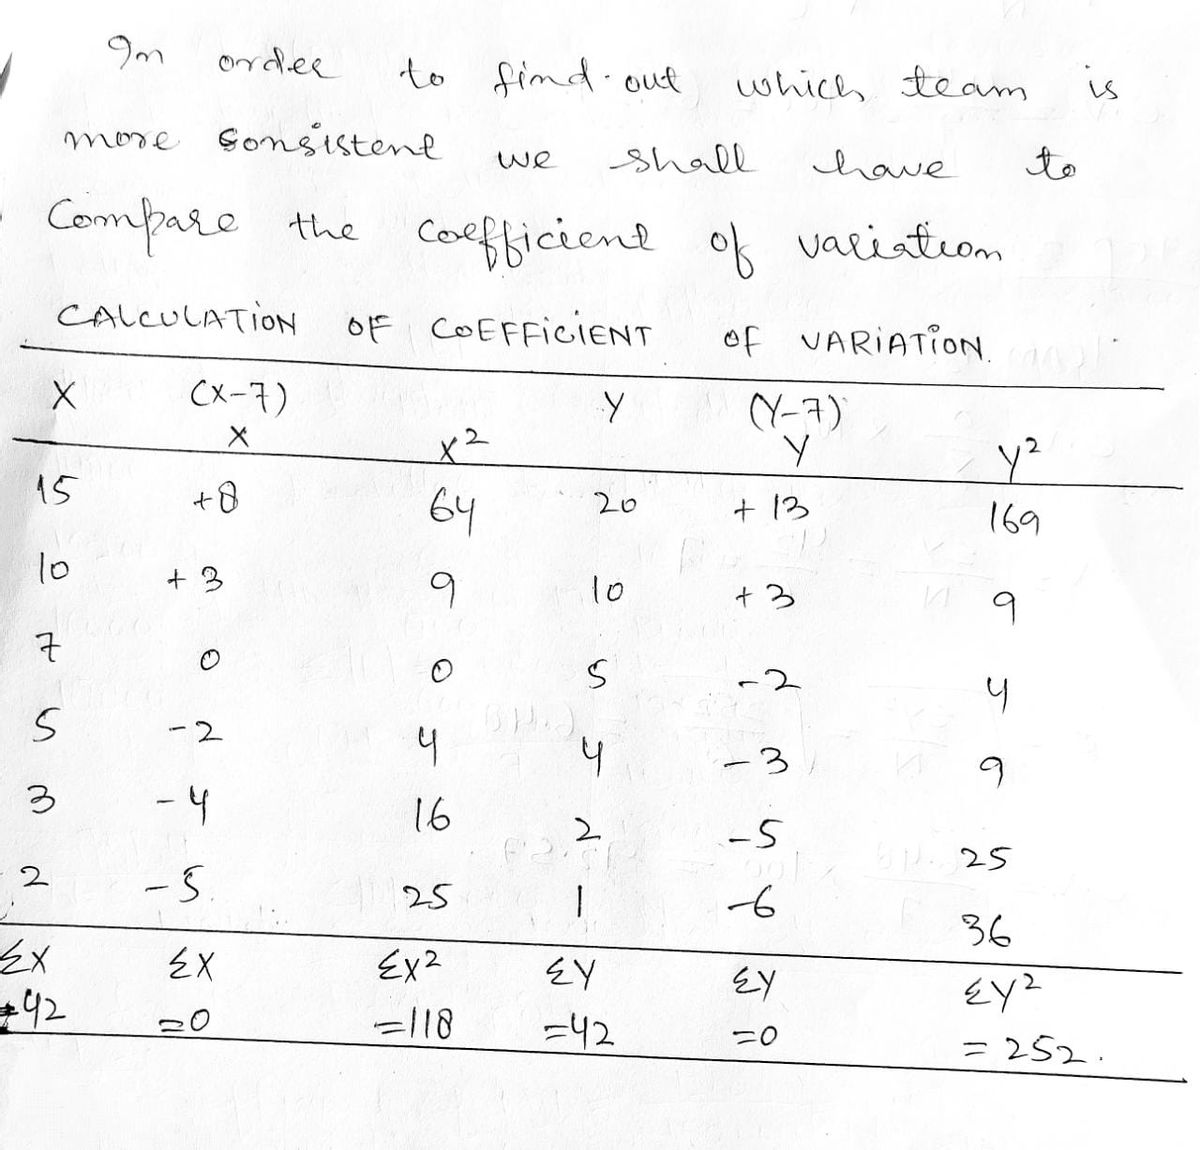 In order to find out which team is
more consistent we shall have to
Compare the coefficient of variation
CALCULATION OF COEFFICIENT OF VARIATION.
X (X-7) Y (Y-7)
X X² Y Y²
15 +8 64 20 +13 169
10 +3 9 10 +3 9
7 0 0 5 -2 4
5 -2 4 4 -3 9
3 -4 16 2 -5 25
2 -5 25 1 -6 36
ΣX ΣX ΣX² ΣY ΣY ΣY²
=42 =0 =118 =42 =0 = 252.